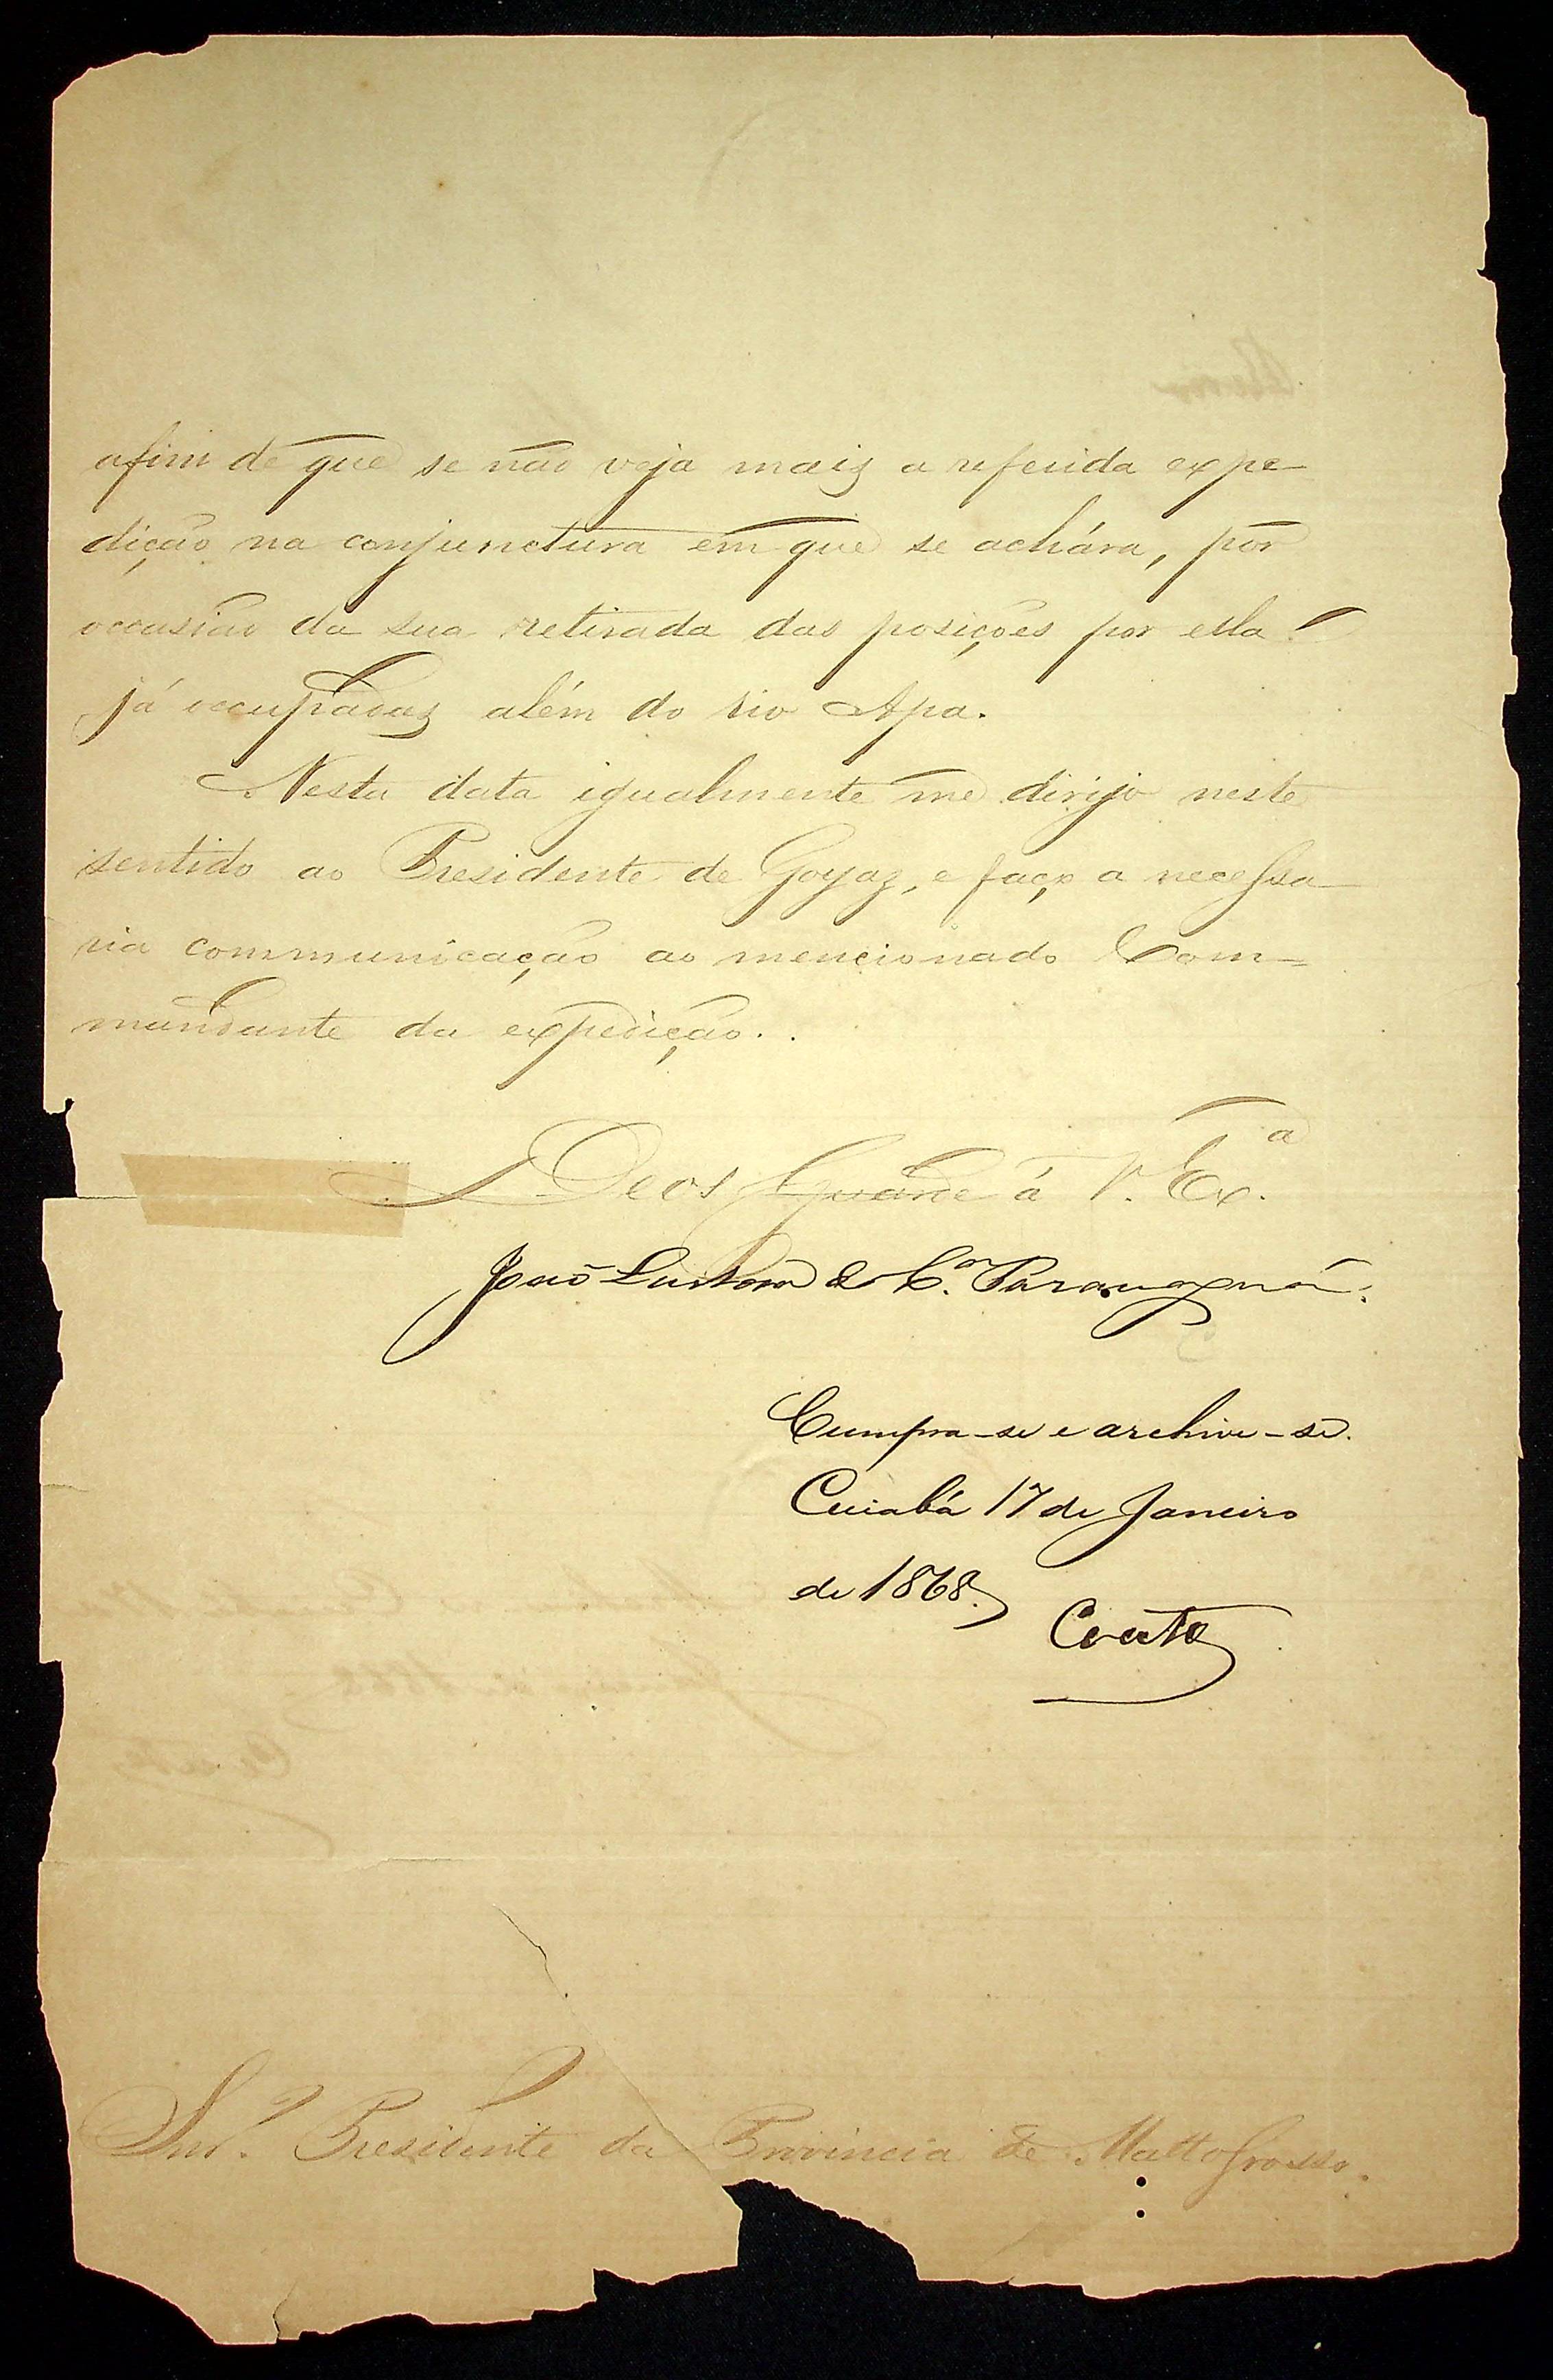 afim de que se não veja mais a referida expe-
dição na conjunctura em que se achára, por
occasião da sua retirada das posições por ella
já occupadas além do rio Apa.
Nesta data igualmente me dirijo neste
sentido ao Presidente de Goyaz, e faço a necessa-
ria communicação ao mencionado Com=
mandante da expedição.
Deos Guarde á V. Ex.ª
João Lustosa da C.ª Paranaguá.
Cumpra-se e archive-se.
Cuiabá 17 de Janeiro
de 1868.
Couto
Snr. Presidente da Provincia de Matto Grosso.